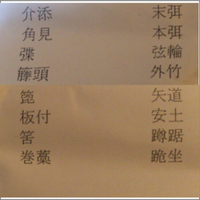 介添
角見
弽
籐頭
箆
板付
筈
巻藁
末弭
本弭
弦輪
外竹
矢道
安土
蹲踞
跪坐